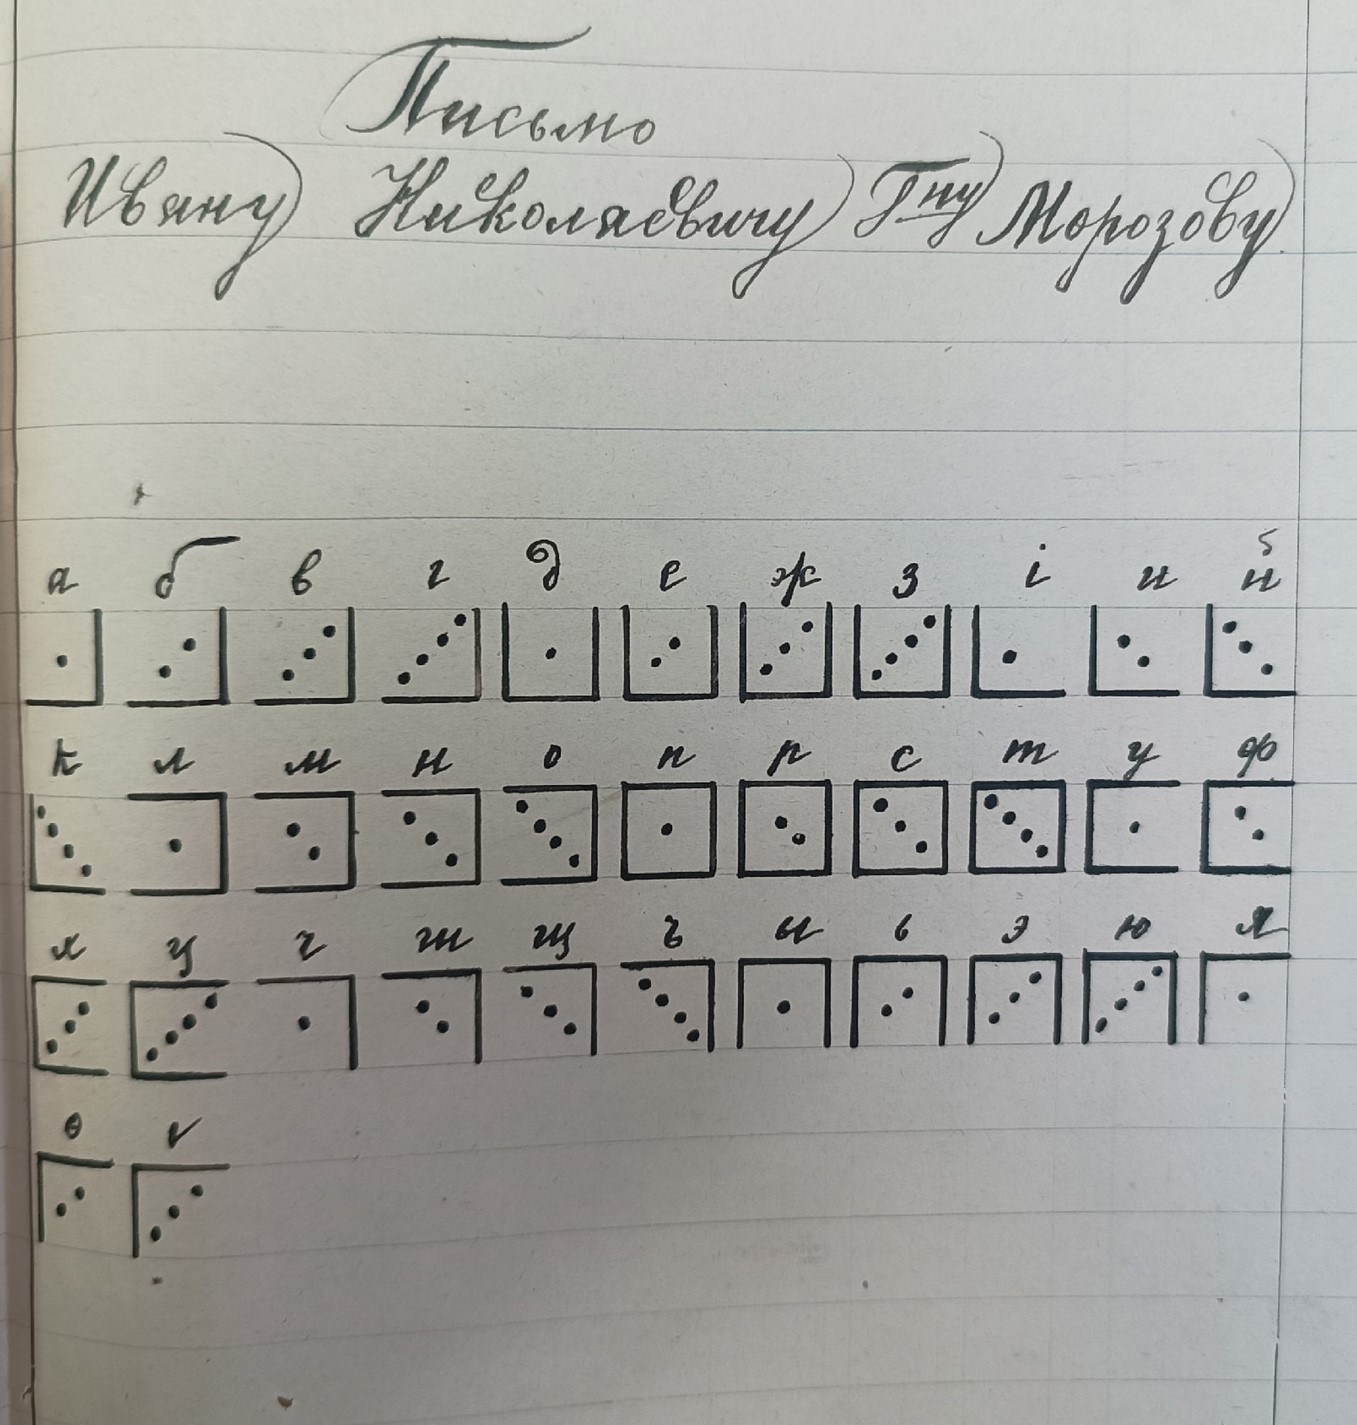 Письмо
Ивану Николаевичу Гну Морозову
а б в г д е ж з і и й
к л м н о п р с т у ф
х ц ч ш щ ъ ы ь э ю я
ѳ ѵ